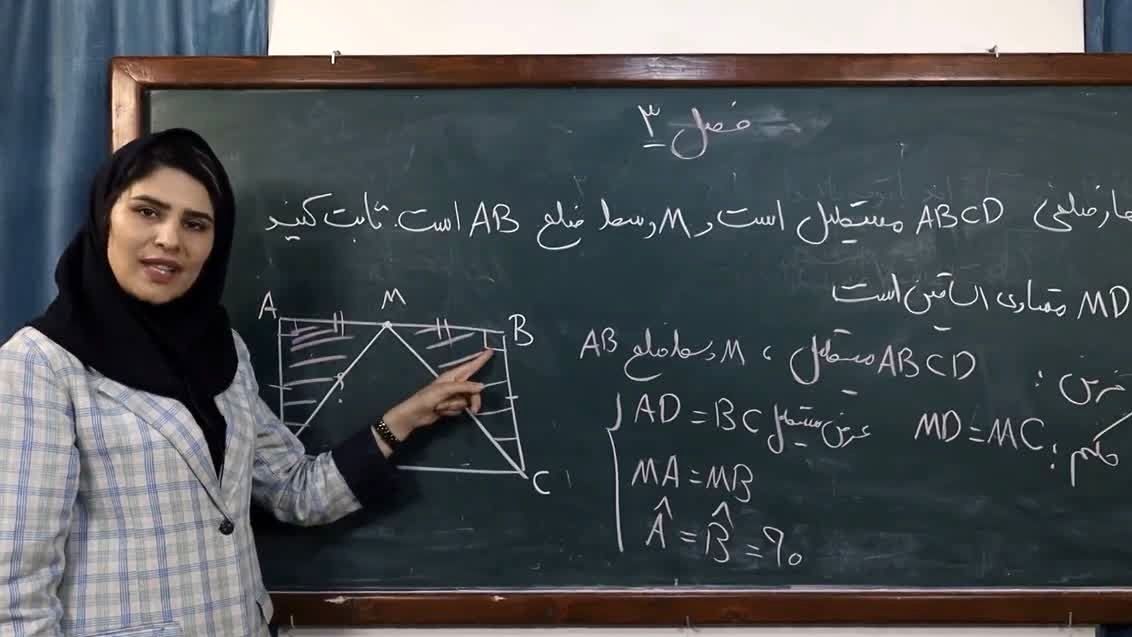 فصل ۳
چهارضلعی ABCD مستطیل است و M وسط ضلع AB است. ثابت کنید
MD متساوی الساقین است
فرض : ABCD مستطیل ، M وسط ضلع AB
حکم : MD = MC
AD = BC عرض مستطیل
MA = MB
Â = B̂ = 90
A M B
C